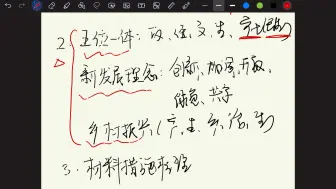 2. 五位一体：政、经、文、生、
新发展理念：创新、协调、开放、
绿色、共享
乡村振兴（产、生、乡、治、生）
3. 材料措施标准